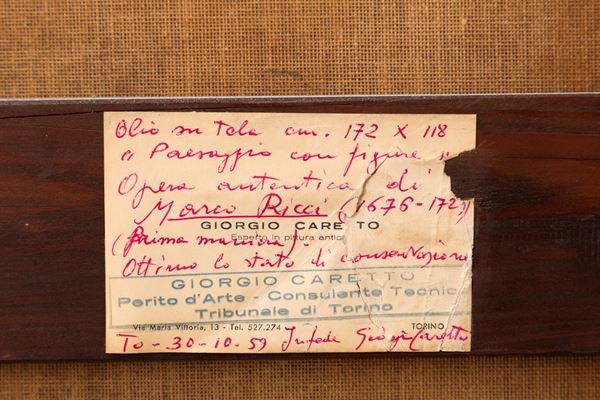 Olio su tela cm. 172 x 118
"Paesaggio con figure"
Opera autentica di
Marco Ricci (1676-172
GIORGIO CARETTO
Esperto in pittura antica
(Prima maniera).
Ottimo lo stato di conservazione
GIORGIO CARETTO
Perito d'Arte - Consulente Tecnico
Tribunale di Torino
Via Maria Vittoria, 13 - Tel. 527.274 TORINO
To - 30-10-59 In fede Giorgio Caretto